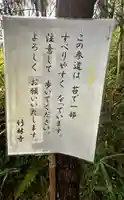 この参道は 苔で一部
すべりやすく なっています。
注意して 歩いてください。
よろしく お願いいたします。
竹林寺